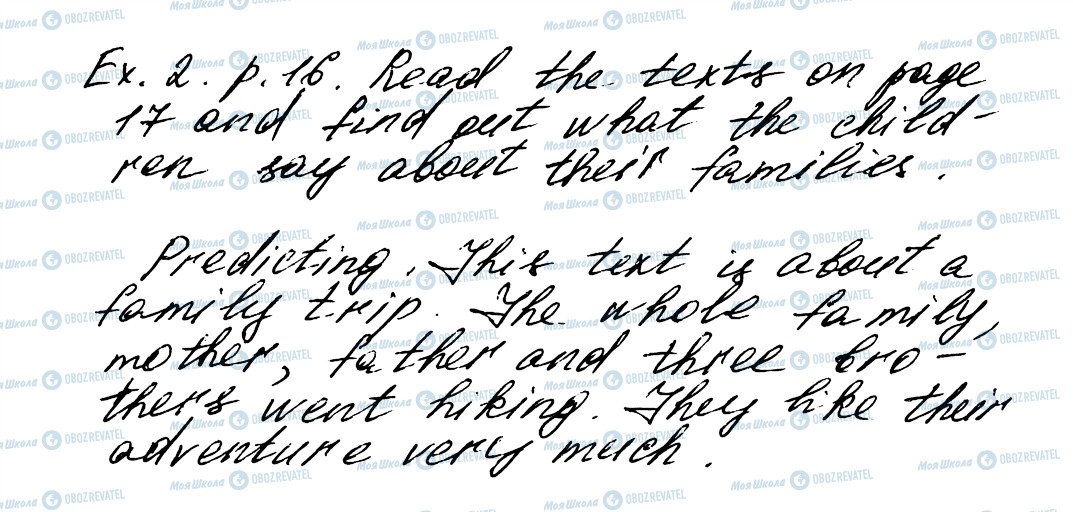 Ex. 2. p. 16. Read the texts on page
17 and find out what the child-
ren say about their families.
Predicting. This text is about a
family trip. The whole family,
mother, father and three bro-
thers went hiking. They like their
adventure very much.